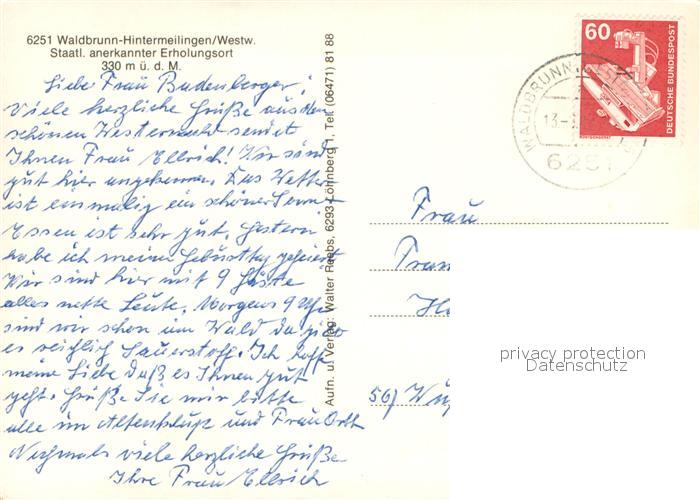 6251 Waldbrunn-Hintermeilingen/Westw.
Staatl. anerkannter Erholungsort
330 m ü. d. M.
Liebe Frau Budenberger!
Viele herzliche Grüße aus dem
schönen Westerwald sendet
Ihnen Frau Ellrich! Wir sind
gut hier angekommen. Das Wetter
ist einmalig ein schöner
Essen ist sehr gut, Gestern
habe ich meinen Gebustag gefeiert
Wir sind hier mit 9 Gäste
alles nette Leute, Morgens 9 Uhr
sind wir schon im Wald da gibt
es reichlich Sauerstoff. Ich hoffe
meine Liebe daß es Ihnen gut
geht. Grüße Sie mir bitte
alle im Altenklub und Frau Orth
Nochmals viele herzliche Grüße
Ihre Frau Ellrich
Aufn. u. Verlag: Walter Raebs, 6293 Löhnberg 1, Tel. (06471) 81 88
60
DEUTSCHE BUNDESPOST
WALDBRUNN
13-
6251
Frau
56) Wup
privacy protection
Datenschutz